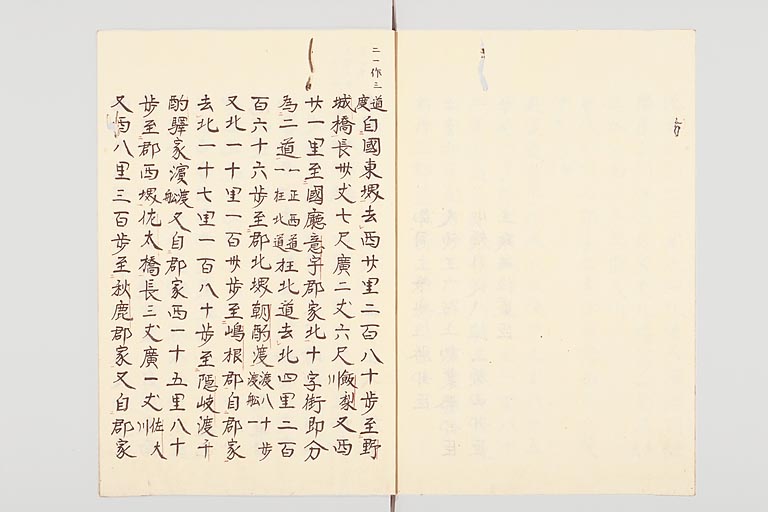 二一作三
道度自國東堺去西廿里二百八十步至野
城橋長卅丈七尺廣二丈六尺飯梨川又西
廿一里至國廳意宇郡家北十字街即分
為二道一正西道一枉北道枉北道去北四里二百
百六十六步至郡北堺朝酌渡渡八十步渡船一
又北一十里一百卅步至嶋根郡自郡家
去北一十七里一百八十步至隱岐渡千
酌驛家濱渡船又自郡家西一十五里八十
步至郡西堺佐太橋長三丈廣一丈佐太川
又西八里三百步至秋鹿郡家又自郡家